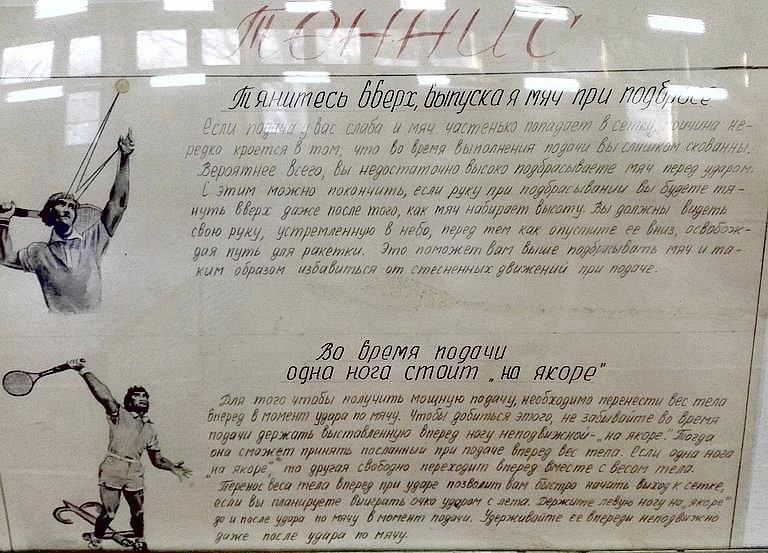 Теннис
Тянитесь вверх, выпуская мяч при подбросе
Если подача у вас слаба и мяч частенько попадает в сетку, причина не-
редко кроется в том, что во время выполнения подачи вы слишком скованны.
Вероятнее всего, вы недостаточно высоко подбрасываете мяч перед ударом.
С этим можно покончить, если руку при подбрасывании вы будете тя-
нуть вверх даже после того, как мяч набирает высоту. Вы должны видеть
свою руку, устремленную в небо, перед тем как опустите ее вниз, освобож-
дая путь для ракетки. Это поможет вам выше подбрасывать мяч и та-
ким образом избавиться от стесненных движений при подаче.
Во время подачи
одна нога стоит „на якоре"
Для того чтобы получить мощную подачу, необходимо перенести вес тела
вперед в момент удара по мячу. Чтобы добиться этого, не забывайте во время
подачи держать выставленную вперед ногу неподвижной-„на якоре". Тогда
она сможет принять посланный при подаче вперед вес тела. Если одна нога
„на якоре", то другая свободно переходит вперед вместе с весом тела.
Перенос веса тела вперед при ударе позволит вам быстро начать выход к сетке,
если вы планируете выиграть очко ударом с лета. Держите левую ногу на „якоре"
до и после удара по мячу в момент подачи. Удерживайте ее впереди неподвижно
даже после удара по мячу.